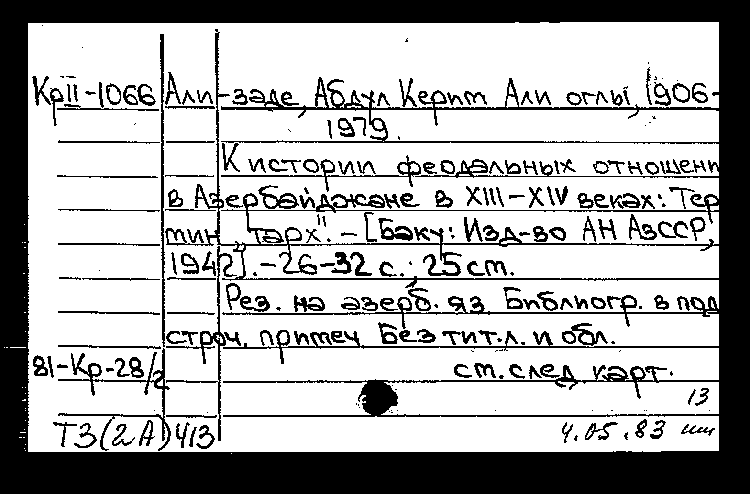 КрII-1066 Али-заде, Абдул Керим Али оглы, 1906-
1979.
К истории феодальных отношени
в Азербайджане в XIII-XIV веках: Тер
мин „тарх". - [Баку: Изд-во АН АзССР,
1942]. - 26-32 с.; 25 см.
Рез. на азерб. яз. Библиогр. в под
строч. примеч. Без тит. л. и обл.
81-Кр-28/2 см. след. карт.
13
Т3(2А)413 4.05.83